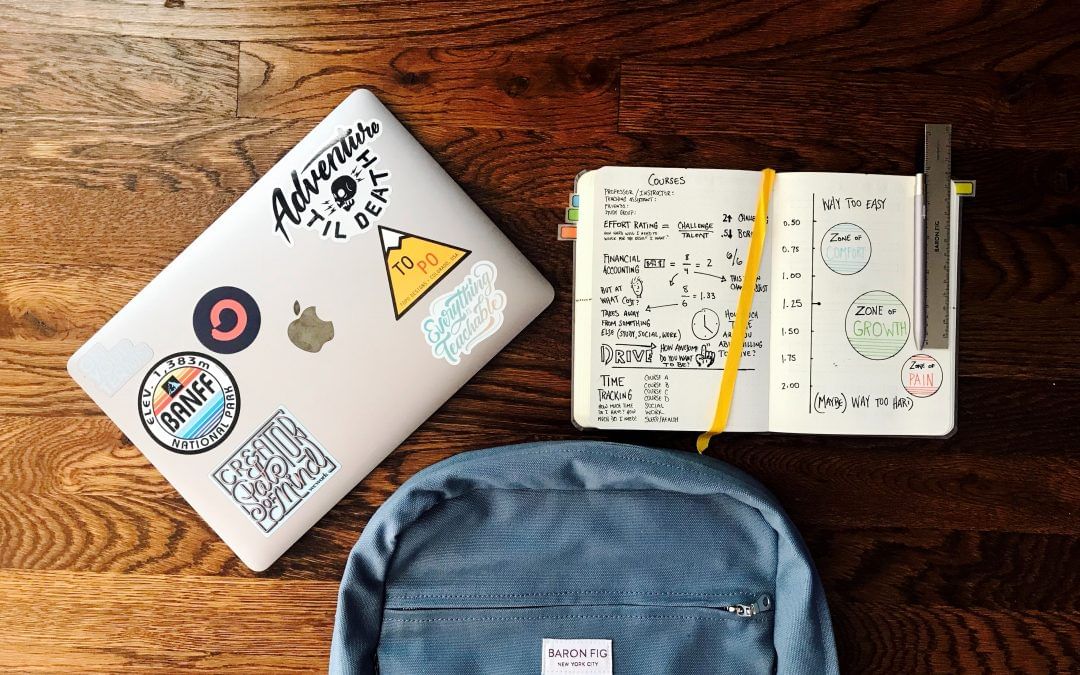 Adventure
TIL DEATH
TO PO
ELEV. 1,383m
BANFF
NATIONAL PARK
Everything
Teachable
CREATOR
State
of Mind
COURSES
PROFESSOR / INSTRUCTOR:
TEACHING ASSISTANT:
FRIENDS:
STUDY GROUP:
EFFORT RATING = CHALLENGE
TALENT
FINANCIAL
ACCOUNTING
= 8 = 2
4
8 = 1.33
6
6/6
BUT AT
WHAT COST?
TAKES AWAY
FROM SOMETHING
ELSE (STUDY, SOCIAL, WORK)
HOW MUCH
DRIVE
HOW AWESOME
DO YOU WANT
TO BE?
TIME
TRACKING
HOW MUCH TIME
DO I HAVE? HOW
MUCH DO I NEED?
COURSE A
COURSE B
COURSE C
COURSE D
SOCIAL
WORK
SLEEP/HEALTH
WAY TOO EASY
0.50
0.75
1.00
1.25
1.50
1.75
2.00
ZONE OF
COMFORT
ZONE OF
GROWTH
ZONE OF
PAIN
(MAYBE) WAY TOO HARD
BARON FIG
BARON FIG
NEW YORK CITY